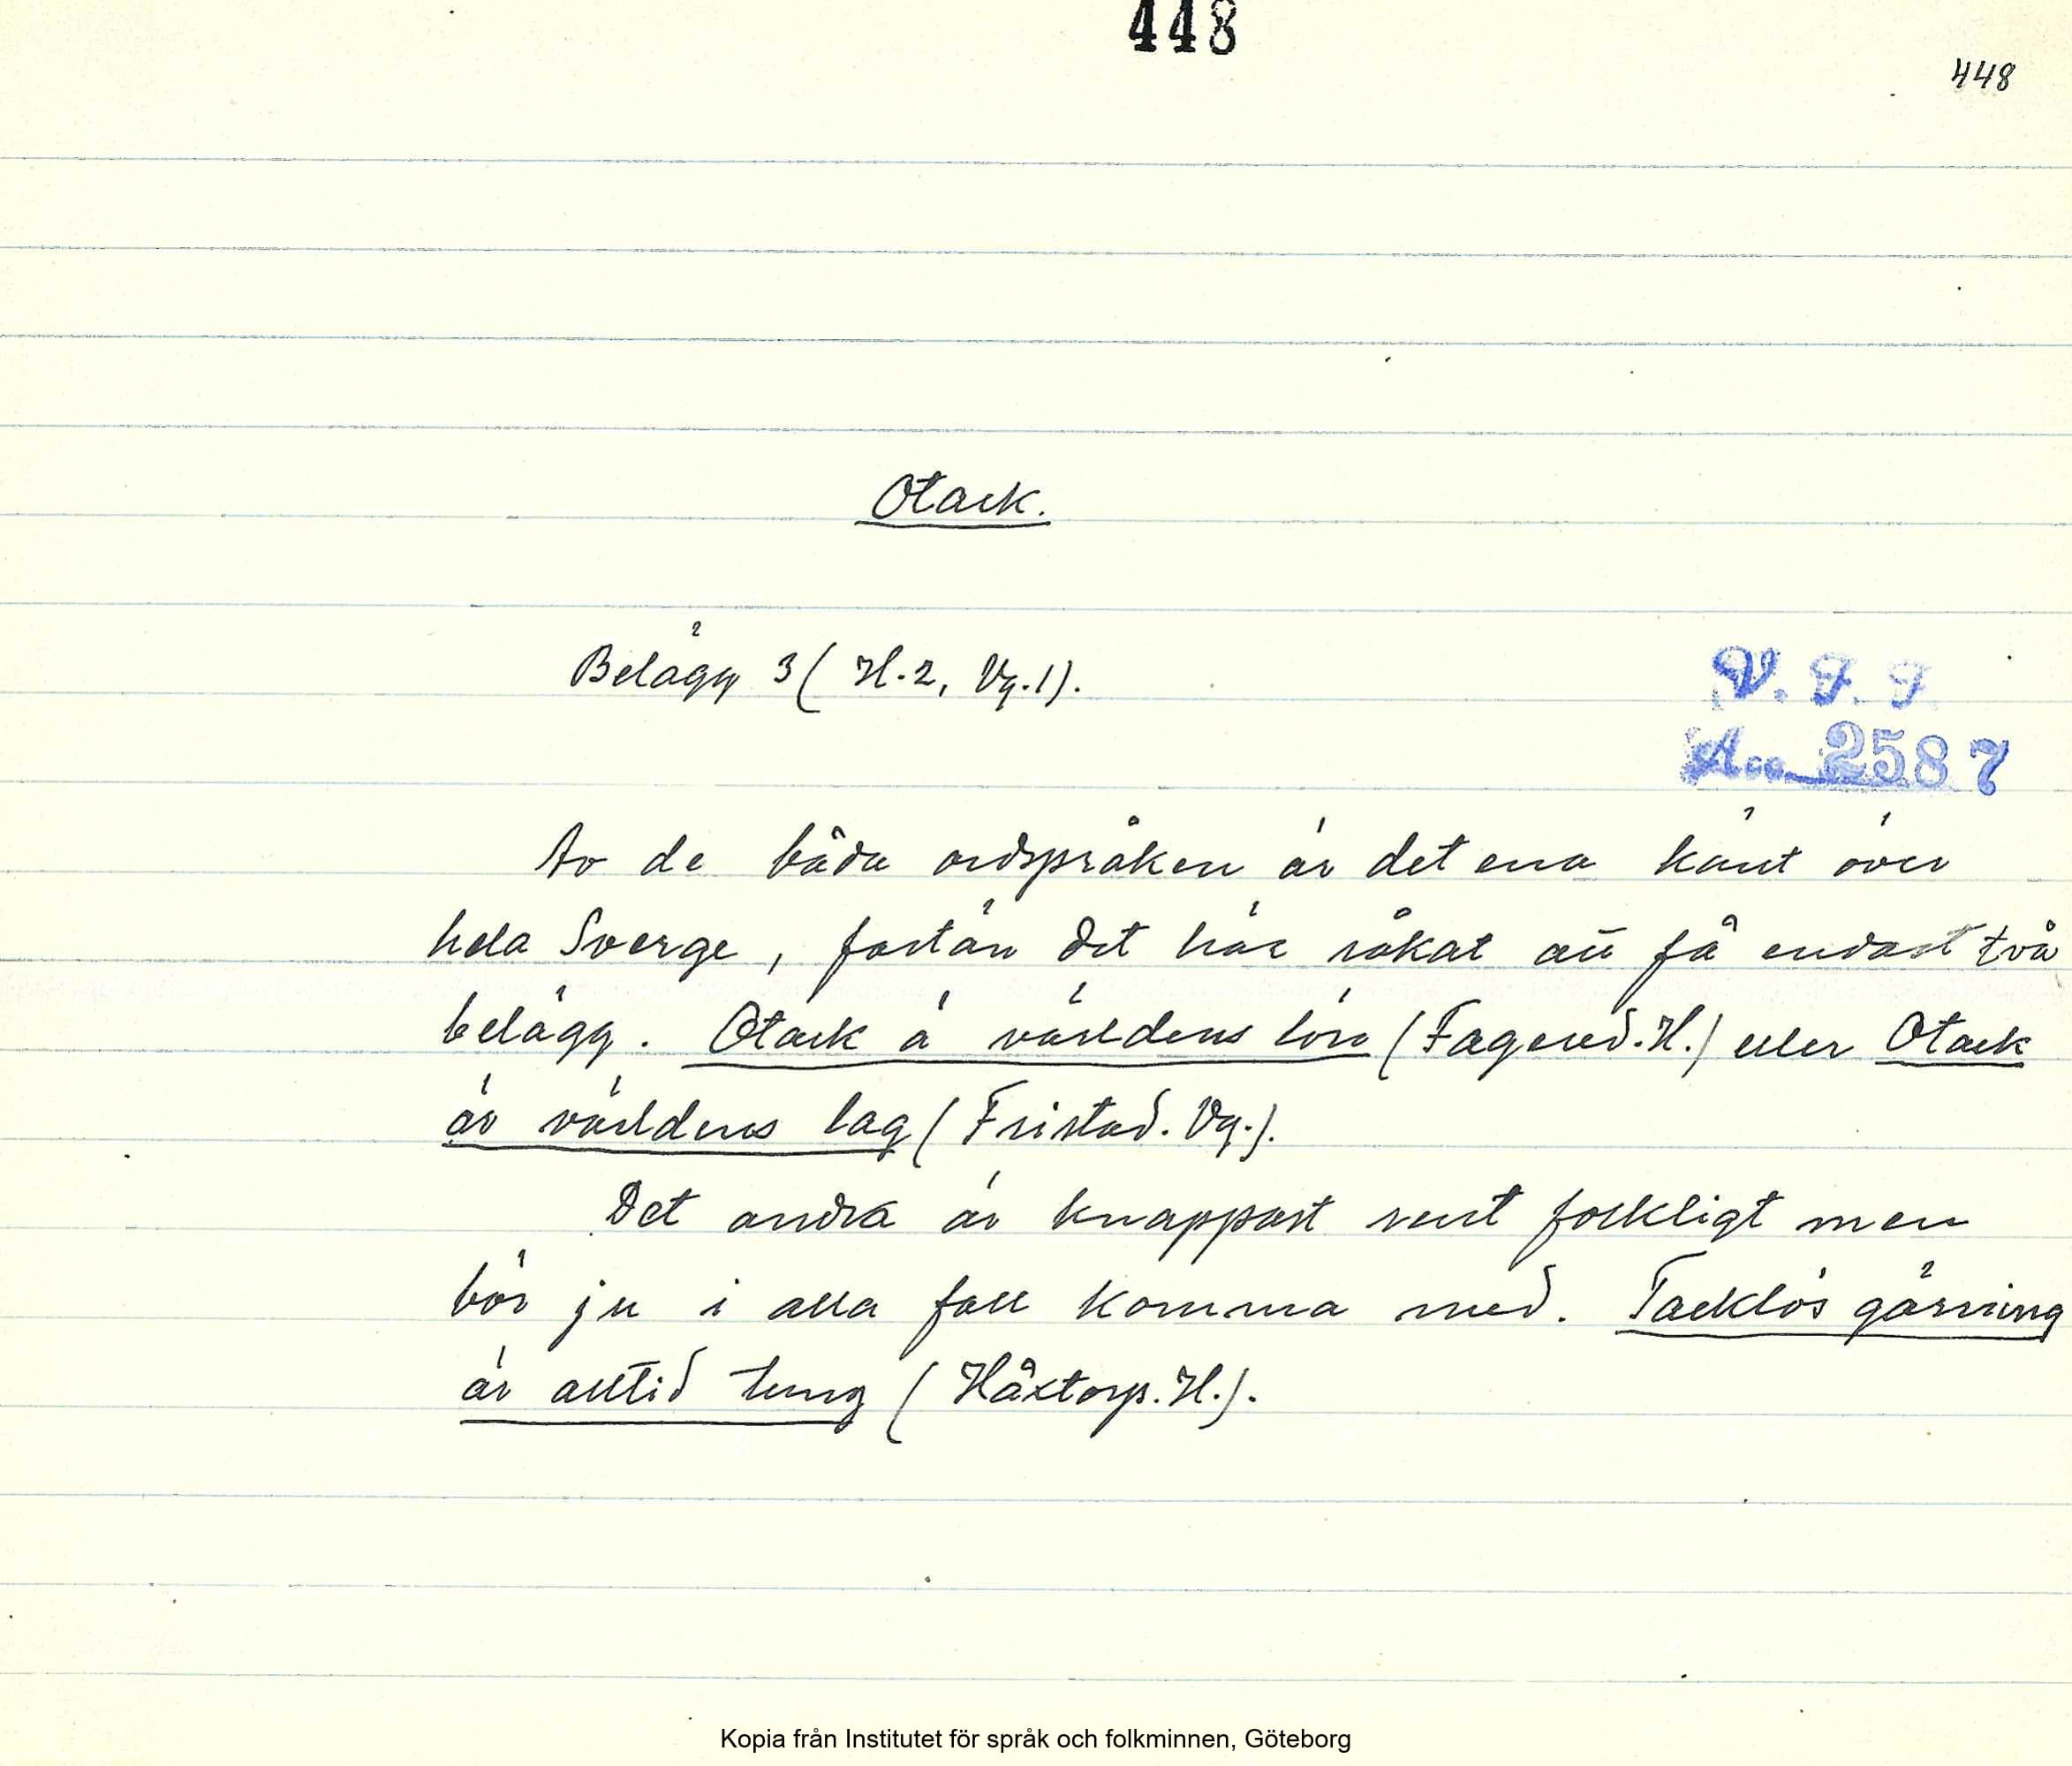 448
448
Otack.
Belägg 3 ( H. 2, Vg. 1).
V. F. F.
Acc. 2587
Av de båda ordspråken är det ena känt över
hela Sverge, fastän det här råkat att få endast två
belägg. Otack ä världens lön (Fagered. H.) eller Otack
är världens lag (Fristad. Vg.).
Det andra är knappast rent folkligt men
bör ju i alla fall komma med. Tacklös gärning
är alltid tung (Håxtorp. H.).
Kopia från Institutet för språk och folkminnen, Göteborg